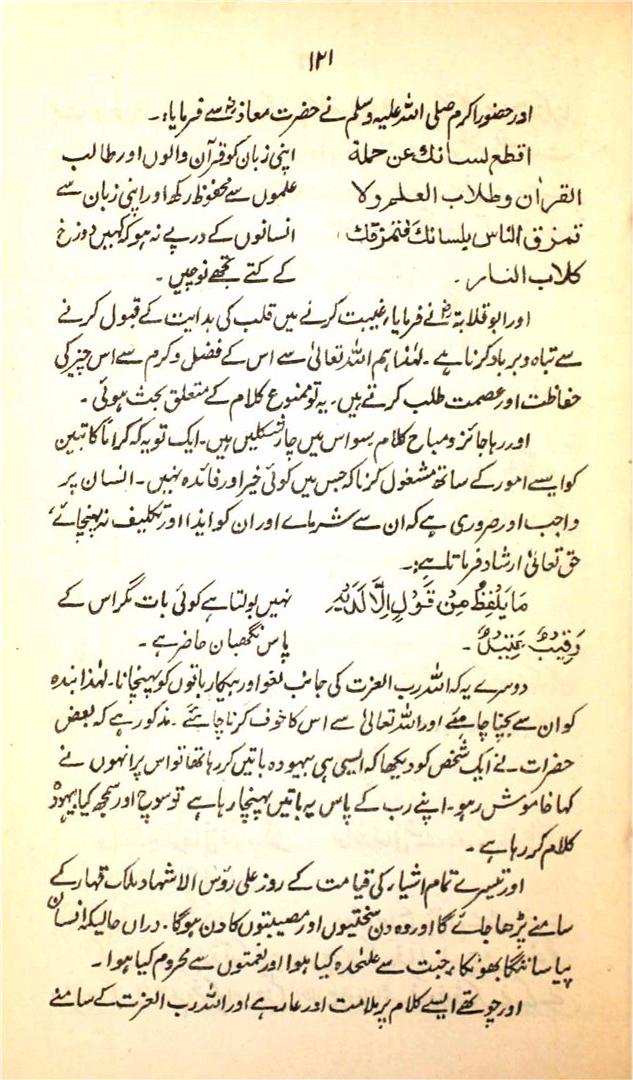 ۱۲۱
اور حضور اکرم صلی اللہ علیہ وسلم نے حضرت معاذؓ سے فرمایا:۔
اقطع لسانك عن حملة
القرآن وطلاب العلم ولا
تمزق الناس بلسانك فتمزقك
كلاب النار۔
اپنی زبان کو قرآن والوں اور طالب
علموں سے محفوظ رکھ اور اپنی زبان سے
انسانوں کے درپے نہ ہو کہ کہیں دوزخ
کے کتے تجھے نوچیں۔
اور ابو قلابہؓ نے فرمایا، غیبت کرنے میں قلب کی ہدایت کے قبول کرنے
سے تباہ و برباد کرنا ہے۔ لہٰذا ہم اللہ تعالیٰ سے اس کے فضل و کرم سے اس چیز کی
حفاظت اور عصمت طلب کرتے ہیں۔ یہ تو ممنوع کلام کے متعلق بحث ہوئی۔
اور رہا جائز و مباح کلام سو اس میں چار شکلیں ہیں۔ ایک تو یہ کہ کراماً کاتبین
کو ایسے امور کے ساتھ مشغول کرنا کہ جس میں کوئی خیر اور فائدہ نہیں۔ انسان پر
واجب اور ضروری ہے کہ ان سے شرمائے اور ان کو ایذا اور تکلیف نہ پہنچائے،
حق تعالیٰ ارشاد فرماتا ہے:۔
مَا يَلْفِظُ مِنْ قَوْلٍ إِلَّا لَدَيْهِ
رَقِيْبٌ عَتِيْدٌ۔
نہیں بولتا ہے کوئی بات مگر اس کے
پاس نگہبان حاضر ہے۔
دوسرے یہ کہ اللہ رب العزت کی جانب لغو اور بیکار باتوں کو پہنچانا۔ لہٰذا بندہ
کو ان سے بچنا چاہئے اور اللہ تعالیٰ سے اس کا خوف کرنا چاہئے۔ مذکور ہے کہ بعض
حضرات نے ایک شخص کو دیکھا کہ ایسی ہی بیہودہ باتیں کر رہا تھا تو اس پر انہوں نے
کہا خاموش رہو۔ اپنے رب کے پاس یہ باتیں پہنچا رہا ہے تو سوچ اور سمجھ کیا بیہودہ
کلام کر رہا ہے۔
اور تیسرے تمام اشیاء کی قیامت کے روز علی رؤس الاشہاد ملک قہار کے
سامنے پڑھا جائے گا اور وہ دن سختیوں اور مصیبتوں کا دن ہوگا۔ دراں حالیکہ انسان
پیاسا ننگا بھوکا، جنت سے علیٰحدہ کیا ہوا اور نعمتوں سے محروم کیا ہوا۔
اور چوتھے ایسے کلام پر ملامت اور عار ہے اور اللہ رب العزت کے سامنے